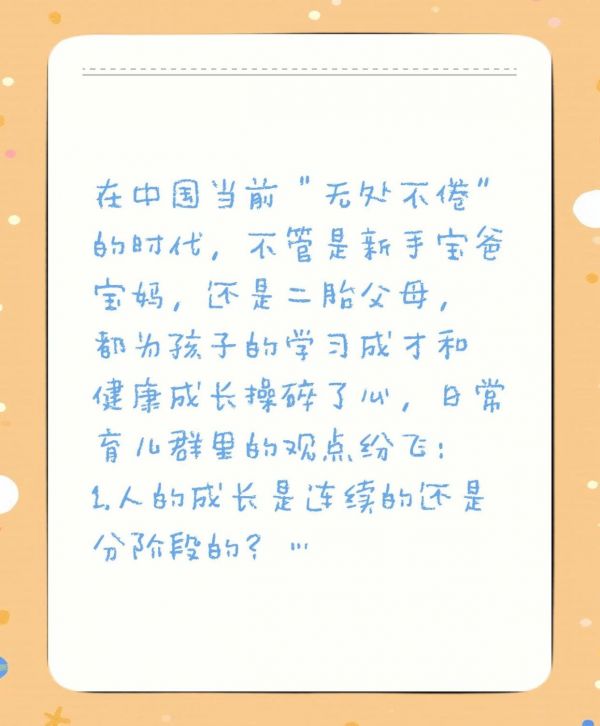 在中国当前“无处不倦”
的时代，不管是新手宝爸
宝妈，还是二胎父母，
都为孩子的学习成才和
健康成长操碎了心，日常
育儿群里的观点纷飞：
1.人的成长是连续的还是
分阶段的？…